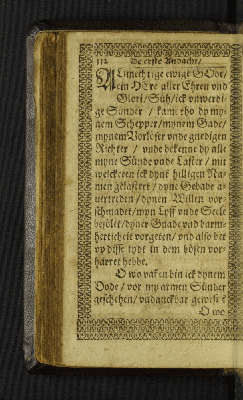 112 De erste Andacht/
ALmechtige ewige GOdt/
ein HEre aller Ehren vnd
Glori/ Süh/ ick vnwerdi-
ge Sünder / kame tho dy my-
nem Schepper/ mynem Gade/
mynem Vorlöser vnde gnedigen
Richter / vnde bekenne dy alle
myne Sünde vnde Laster / mit
welckeren ick dyne hilligen Na-
men gelastert / dyne Gebade a-
uertreden/ dynen Willen vor-
schmadet/ myn Lyff vnde Seele
besölet/ dyner Gaade vnd barm-
herticheit vorgeten/ vnd also bet
vp disse tydt in dem bösen vor-
harret hebbe.
O wo vaken bin ick dynem
Dode / vor my armen Sünder
geschehen/ vndanckbar gewest
O wo